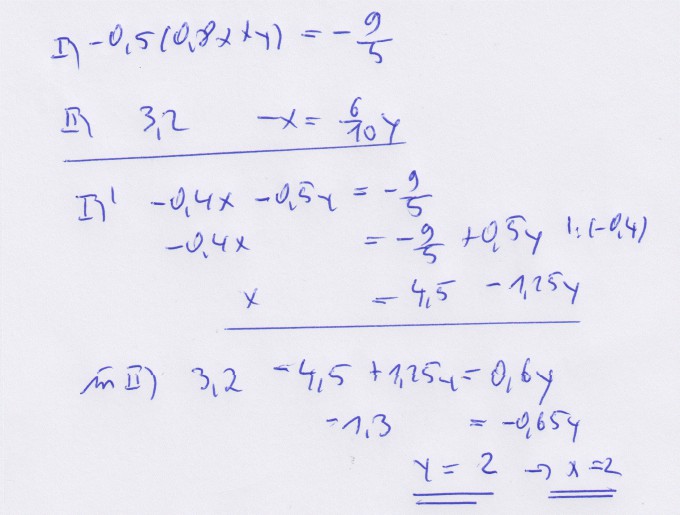 I) -0,5(0,8x+y) = -9/5
II) 3,2 -x = 6/10 y
I)' -0,4x -0,5y = -9/5
-0,4x = -9/5 +0,5y |:(-0,4)
x = 4,5 -1,25y
in II) 3,2 -4,5 +1,25y = 0,6y
-1,3 = -0,65y
y = 2 → x=2